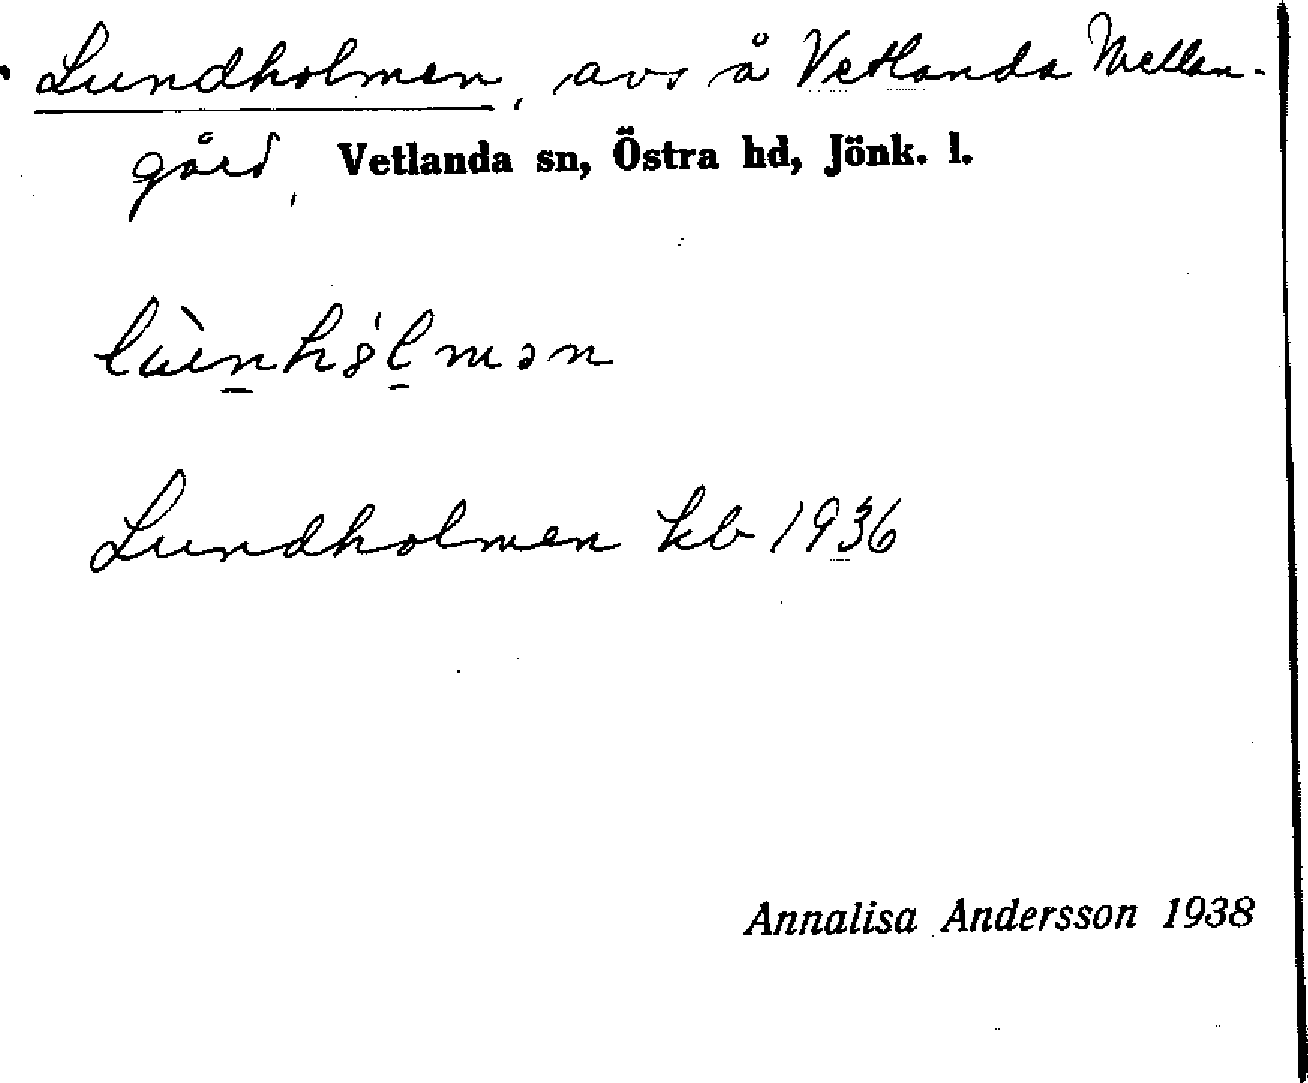 Lundholmen, avs å Vetlanda Mellan-
gård, Vetlanda sn, Östra hd, Jönk. l.
lùn̲hó̤l̲mən
Lundholmen kb 1936
Annalisa Andersson 1938